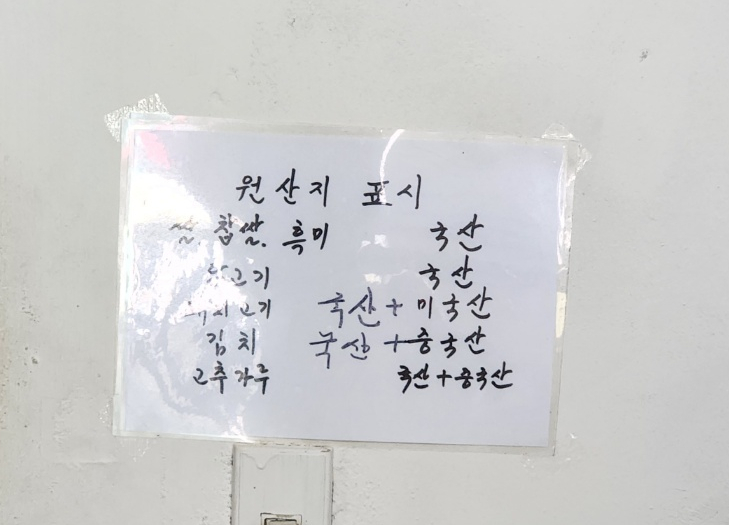 원산지 표시
쌀, 찹쌀, 흑미 국산
국산
돼지고기 국산+미국산
김치 국산+중국산
고추가루 국산+중국산